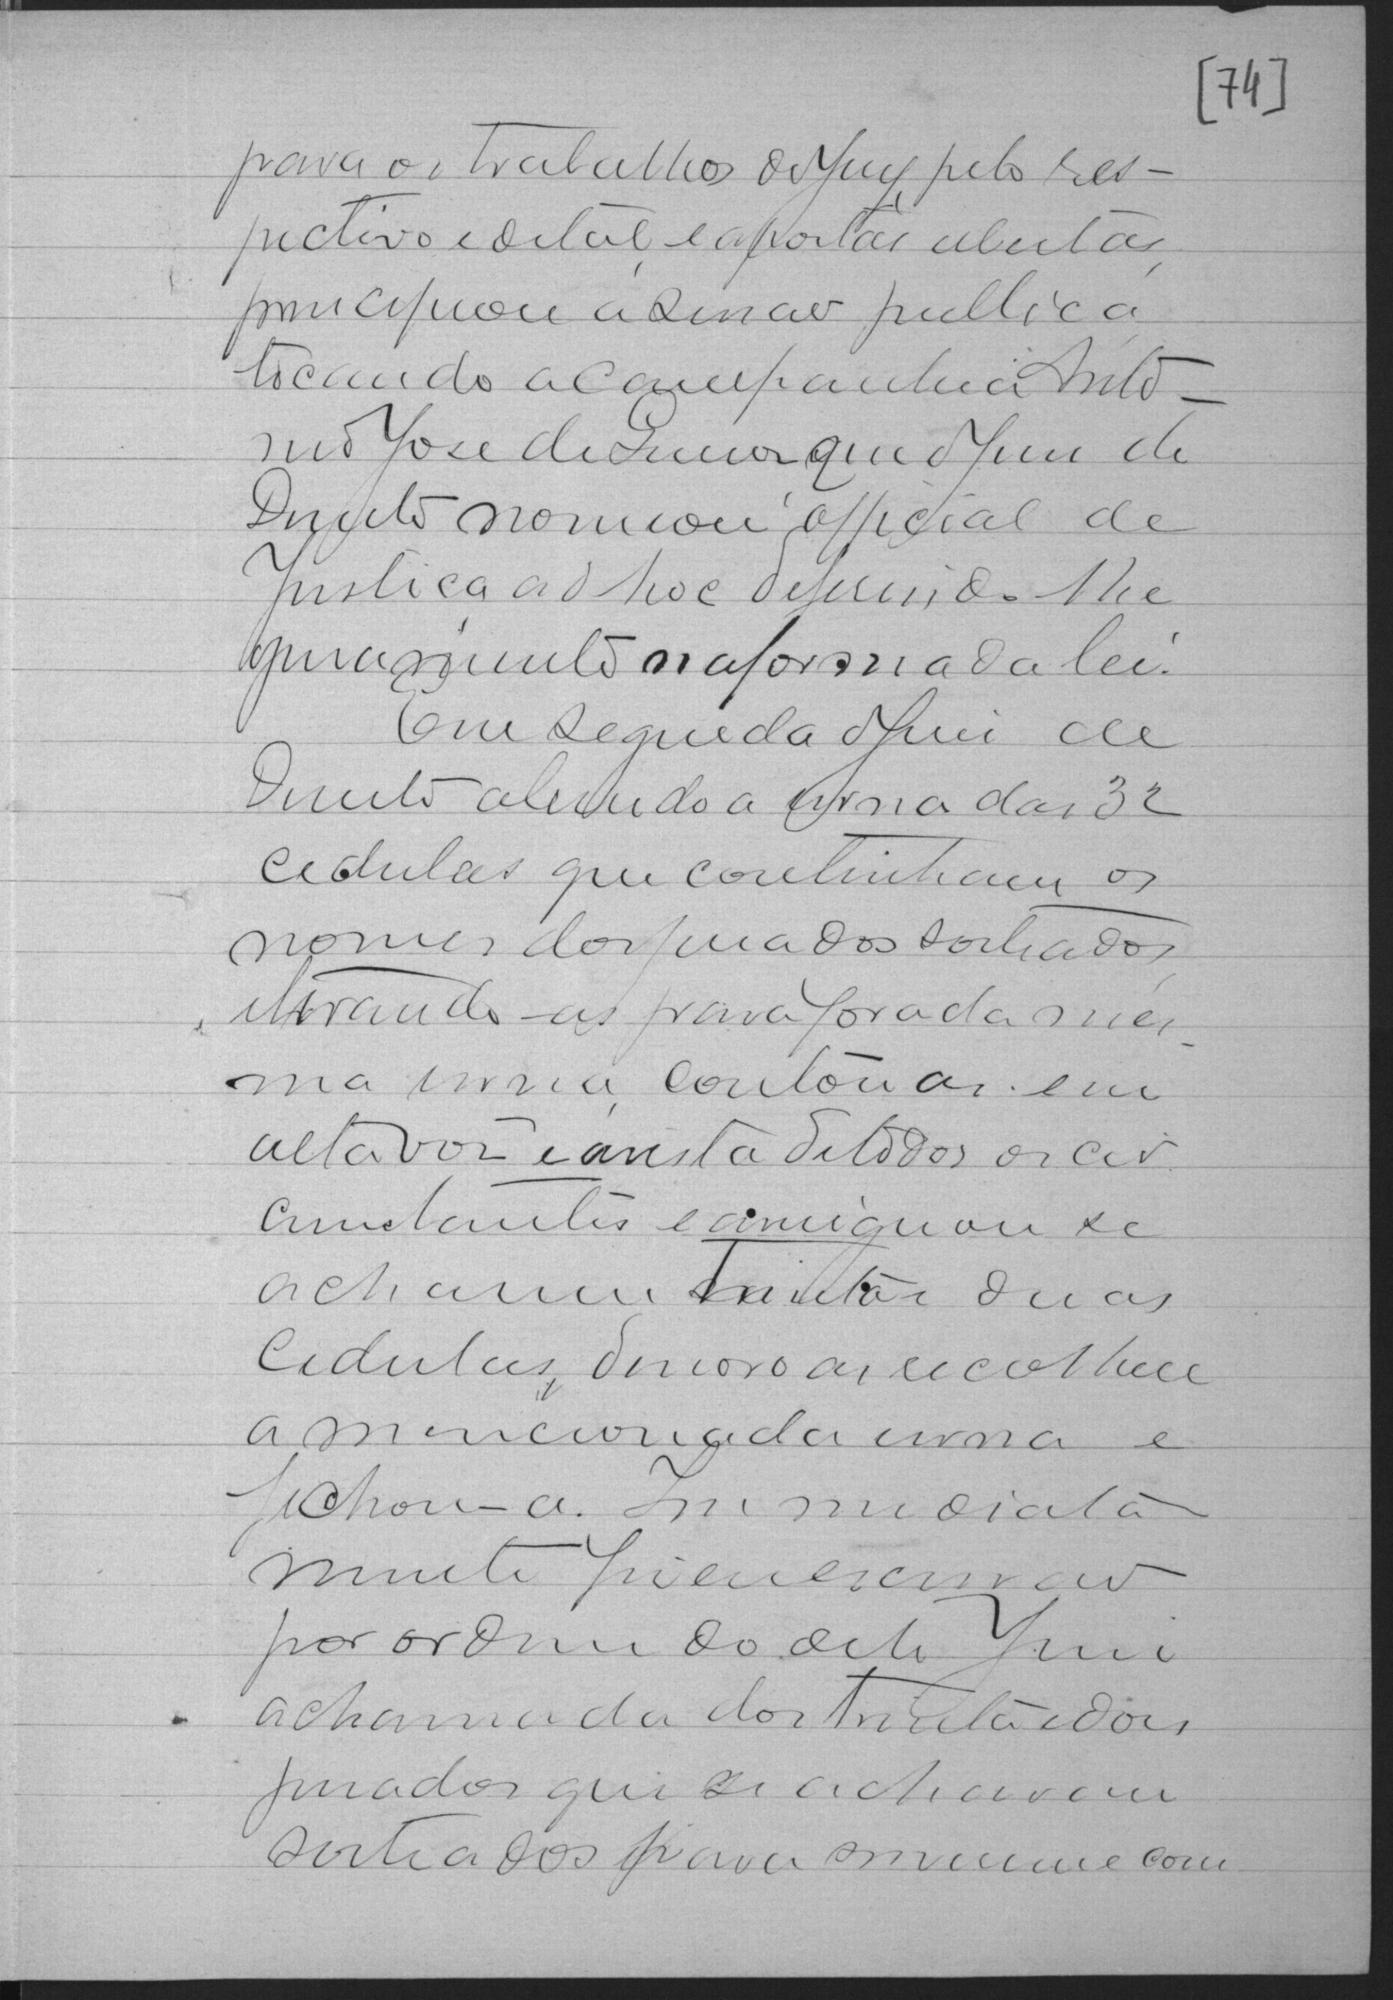 [74]
para os trabalhos do Jury, pelo res-
pectivo edital, e a portas abertas,
principiou a sessão publica,
tocando a campanhia Anto-
nio Jose de Lima que o Juiz de
Direito nomeou official de
Justiça ad hoc deferindo-lhe
juramento na forma da lei.
Em seguida o Juiz de
Direito abrindo a urna das 32
cedulas que continham os
nomes dos jurados sorteados,
tirando-as para fora da mes-
ma urna, contou as em
alta voz e a vista de todos os cir
cunstantes e averiguou se
acharem trinta e duas
cedulas, de novo as recolheu
a mencionada urna e
fechou-a. Immediata
mente fiz eu escrivão
por ordem do dito Juiz
a chamada dos trinta e dois
jurados que se achavam
sorteados para servirem e com